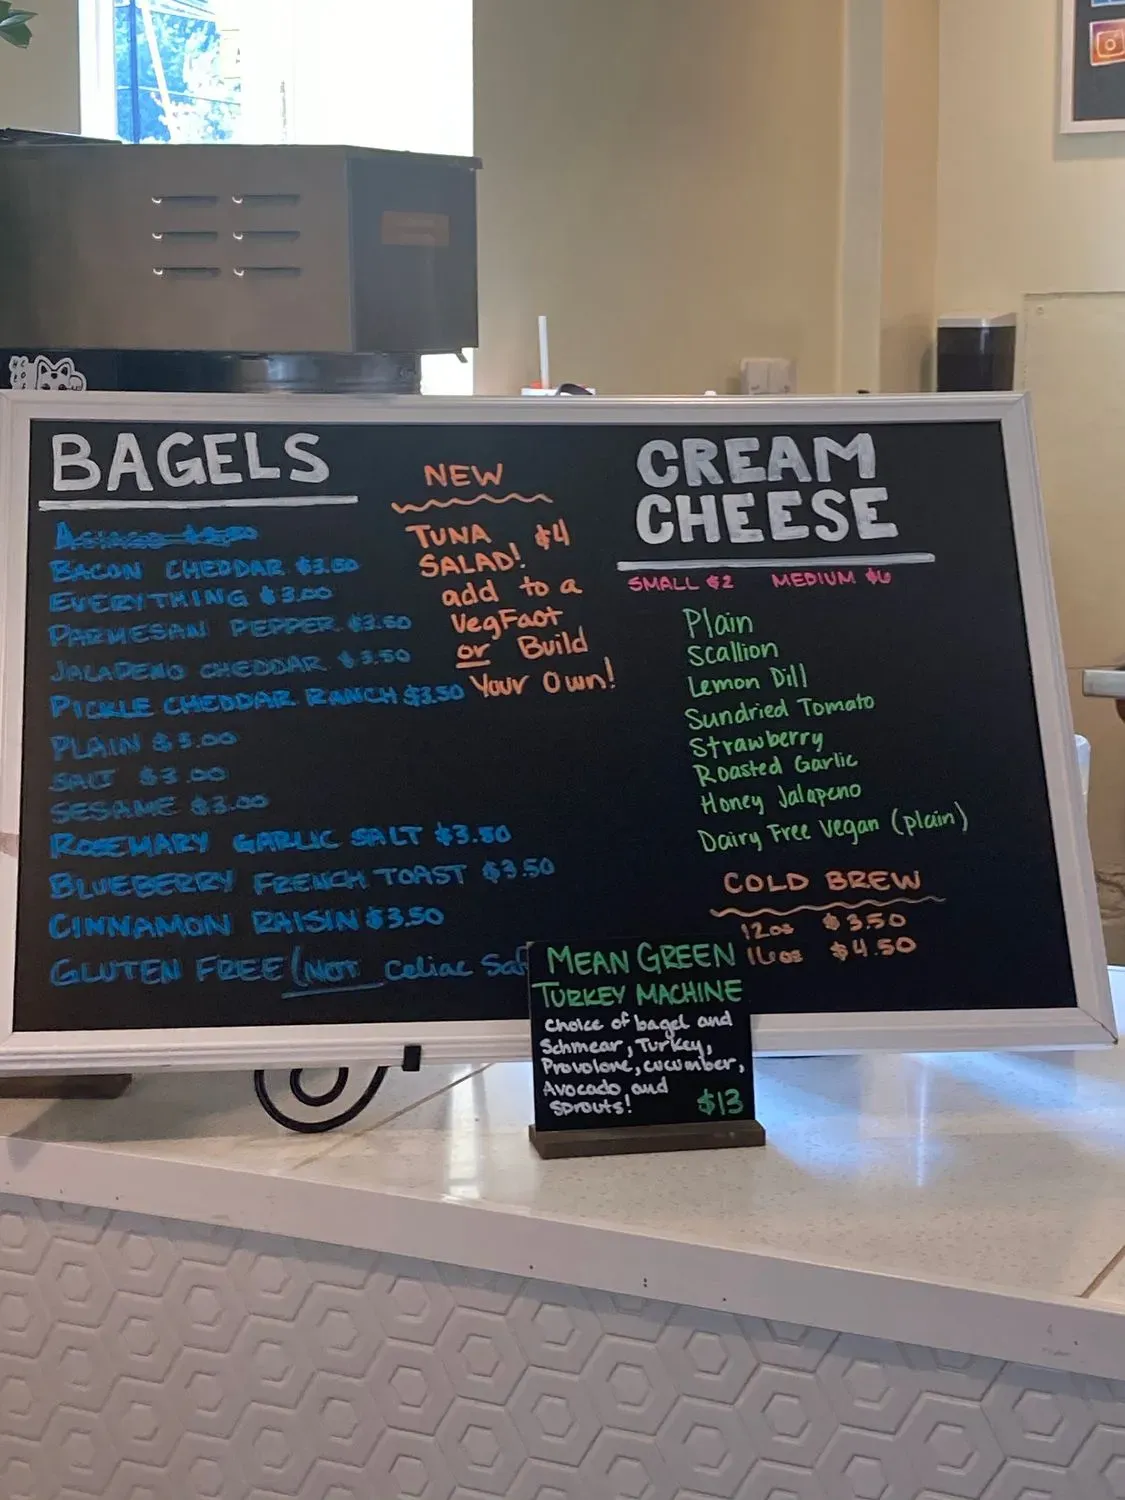 BAGELS
BACON CHEDDAR $3.50
EVERYTHING $3.00
PARMESAN PEPPER $3.50
JALAPENO CHEDDAR $3.50
PICKLE CHEDDAR RANCH $3.50
PLAIN $3.00
SALT $3.00
SESAME $3.00
ROSEMARY GARLIC SALT $3.50
BLUEBERRY FRENCH TOAST $3.50
CINNAMON RAISIN $3.50
GLUTEN FREE (NOT Celiac
NEW
TUNA $4
SALAD!
add to a
VegFast
or Build
Your Own!
CREAM
CHEESE
SMALL $2 MEDIUM $6
Plain
Scallion
Lemon Dill
Sundried Tomato
Strawberry
Roasted Garlic
Honey Jalapeno
Dairy Free Vegan (plain)
COLD BREW
12oz $3.50
16oz $4.50
MEAN GREEN
TURKEY MACHINE
Choice of bagel and
Schmear, Turkey,
Provolone, cucumber,
Avocado and
sprouts! $13